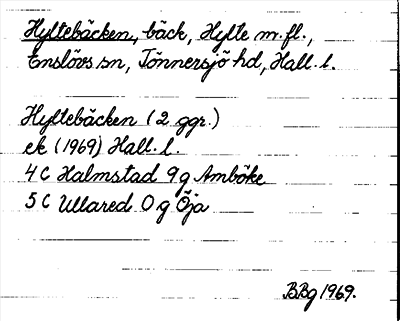 Hyltebäcken, bäck, Hylte m.fl.,
Enslövs sn, Tönnersjö hd, Hall. l.
Hyltebäcken (2 ggr.)
ek (1969) Hall. l.
4 C Halmstad 9 g Amböke
5 C Ullared 0 g Öja
BBg 1969.